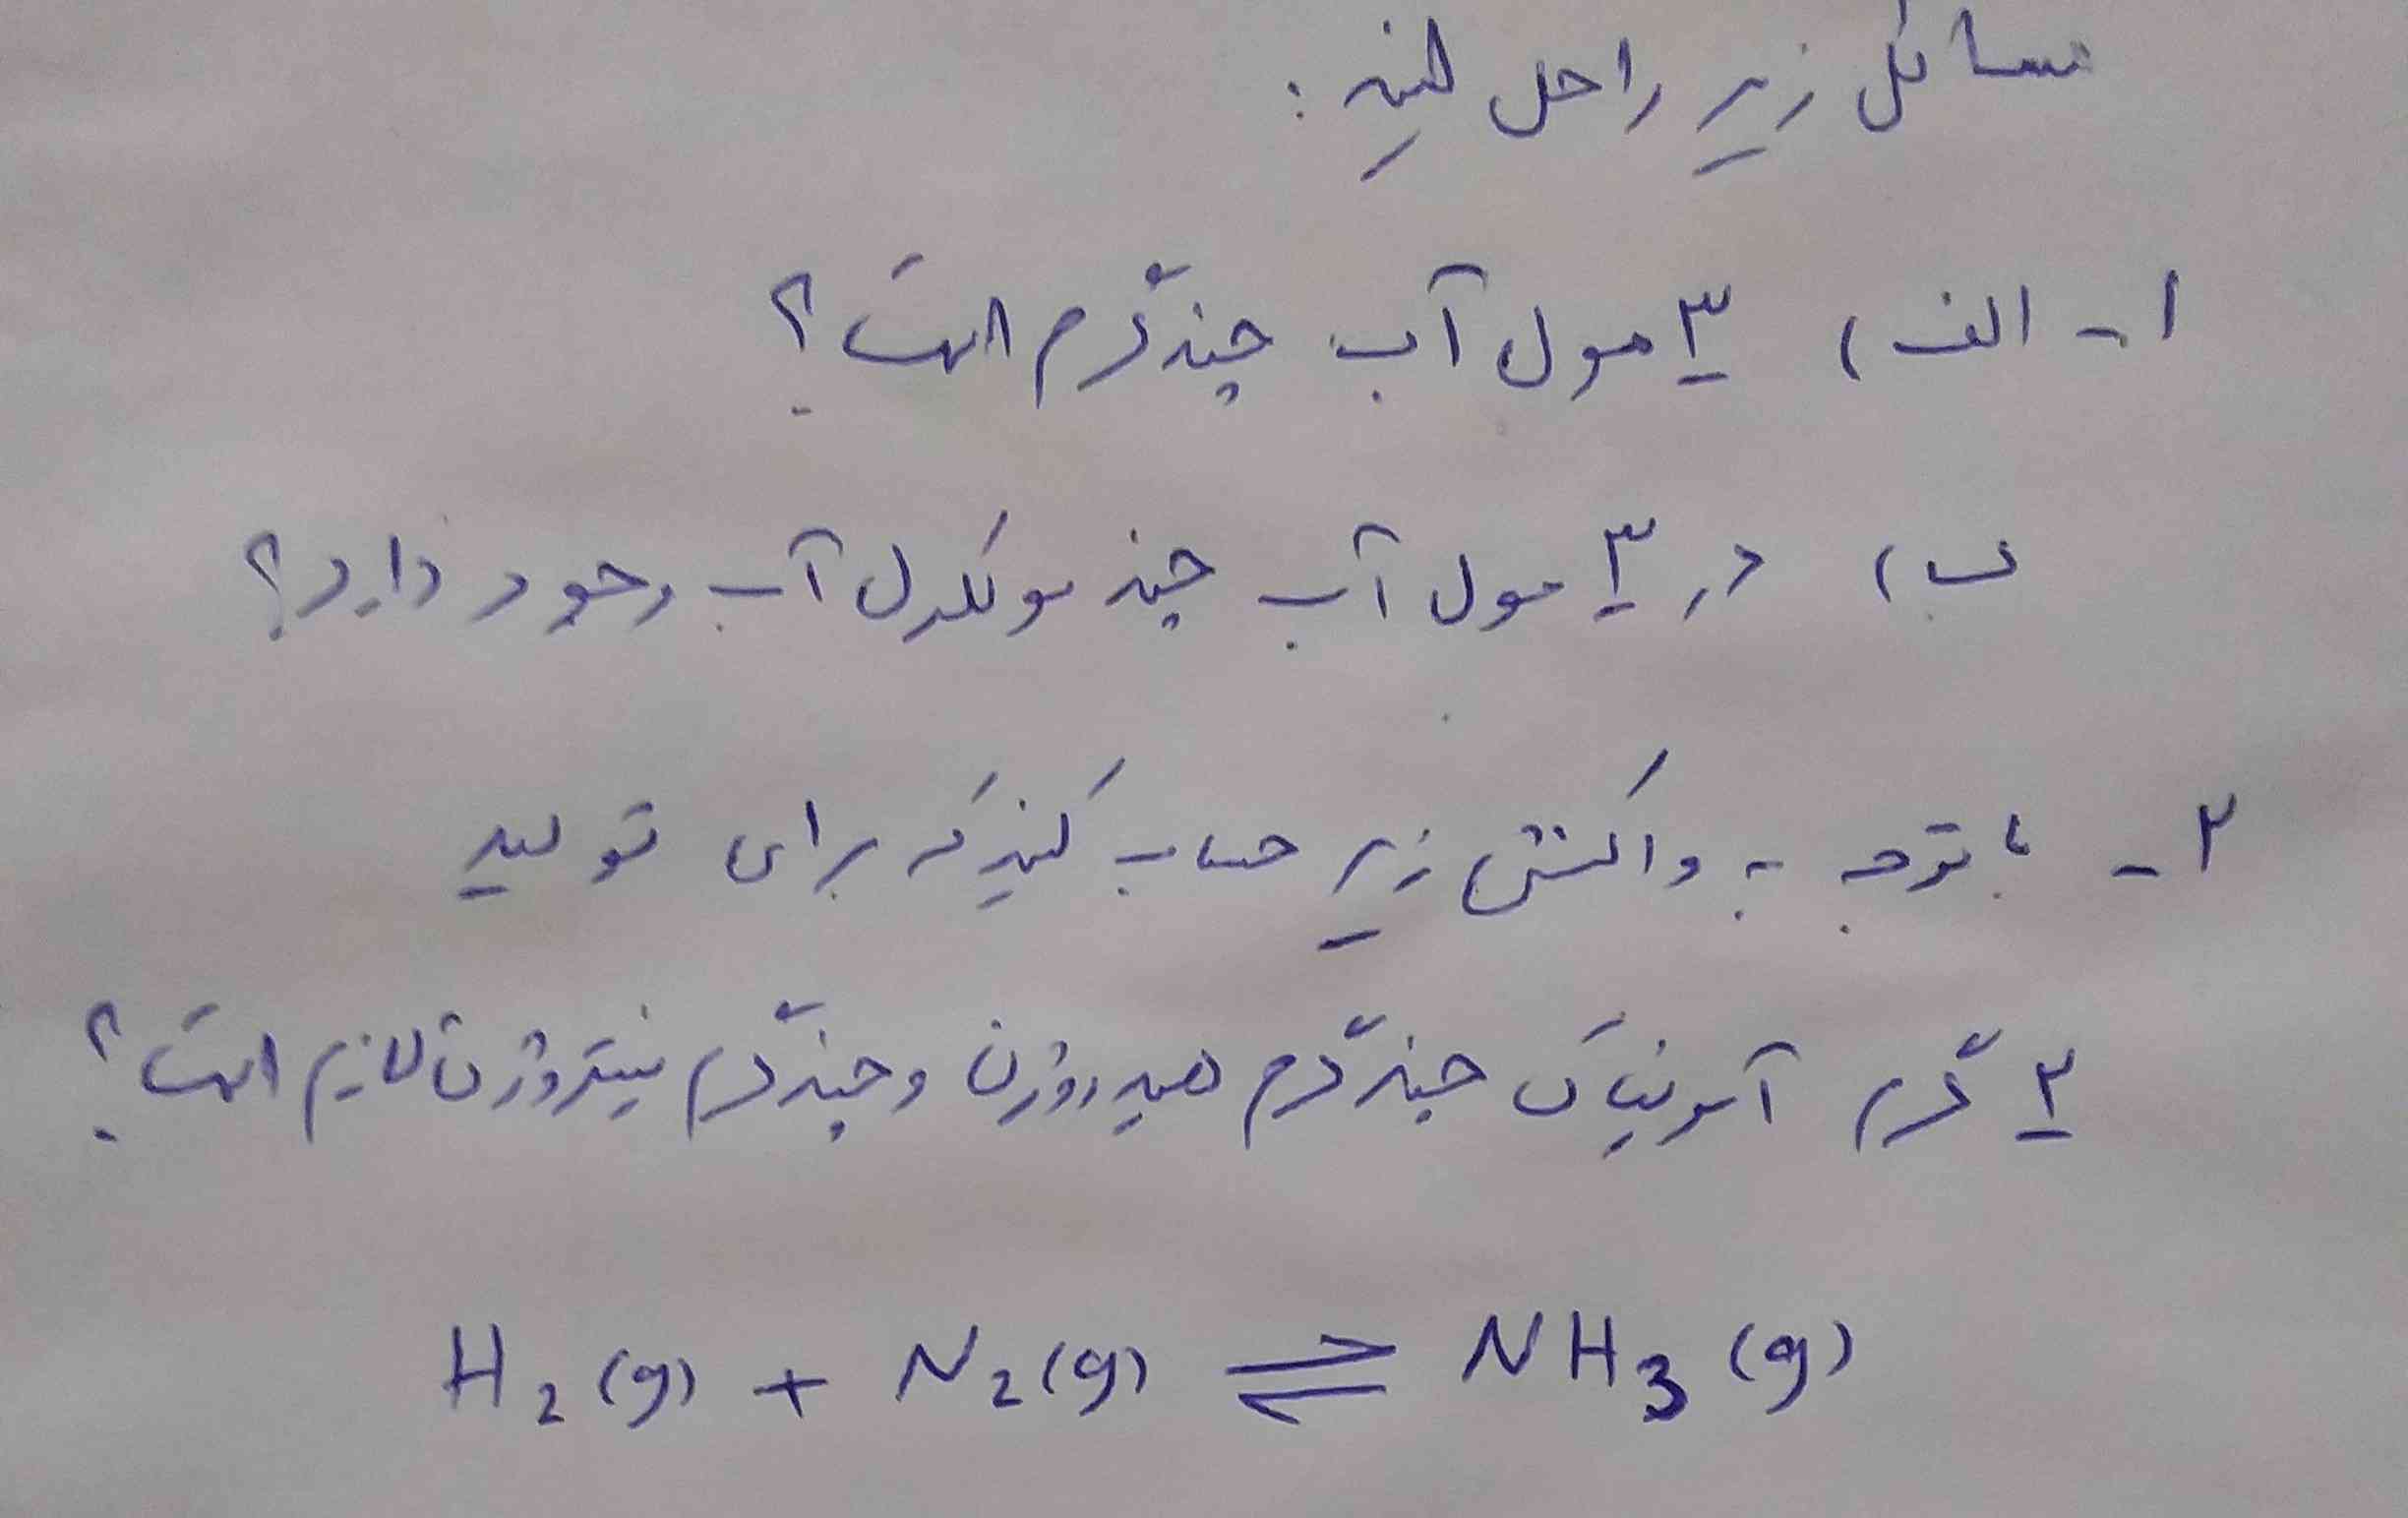 مسائل زیر را حل کنید :
۱- الف) ۳ مول آب چند گرم است؟
ب) در ۳ مول آب چند مولکول آب وجود دارد؟
۲- با توجه به واکنش زیر حساب کنید که برای تولید
۲ گرم آمونیاک چند گرم هیدروژن و چند گرم نیتروژن لازم است؟
H2(g) + N2(g) ⇌ NH3(g)